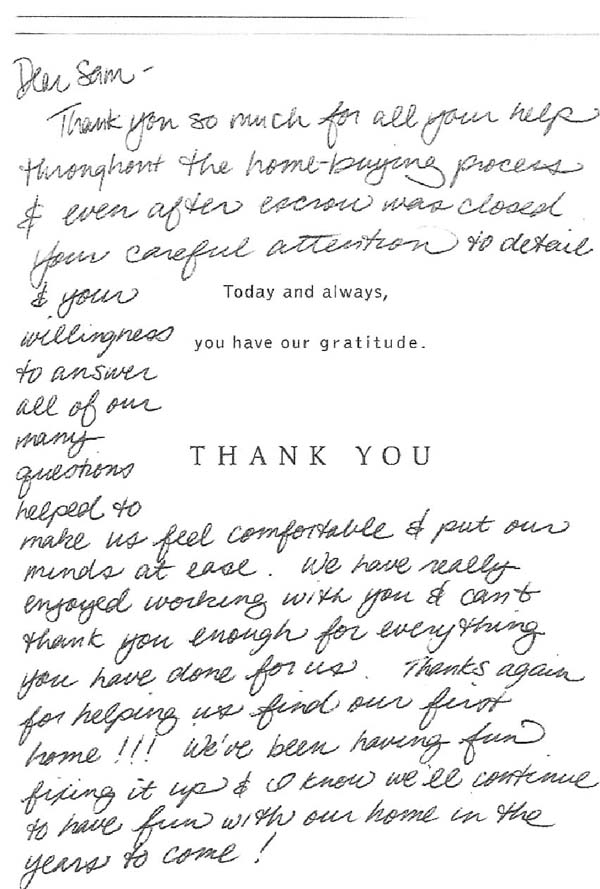 Dear Sam -
Thank you so much for all your help
throughout the home-buying process
& even after escrow was closed
Your careful attention to detail
& your
willingness
to answer
all of our
many
questions
helped to
Today and always,
you have our gratitude.
THANK YOU
make us feel comfortable & put our
minds at ease. We have really
enjoyed working with you & can't
thank you enough for everything
you have done for us. Thanks again
for helping us find our first
home!!! We've been having fun
fixing it up & I know we'll continue
to have fun with our home in the
years to come!